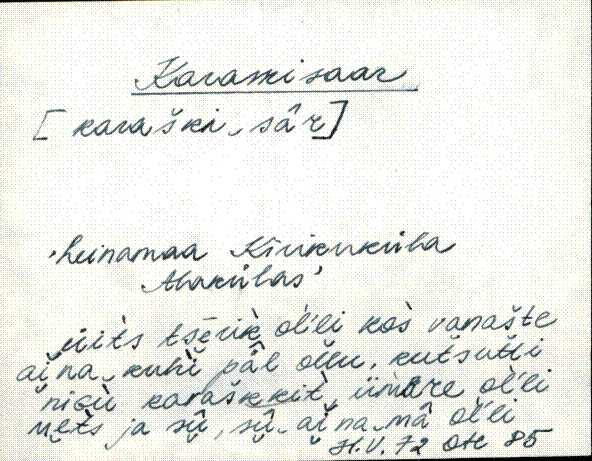 Karaskisaar
[karaški‿sâr]
'heinamaa Kirikuküla
Alakülas'
üit́s tsērik ol´li kos vanašte
aina‿kuhi päl ollu, kutsutti
nigu karaškkit, ümbre ol´li
mets ja sû, sû‿aina‿mâ ol´li
H.V. 72 Ote 85